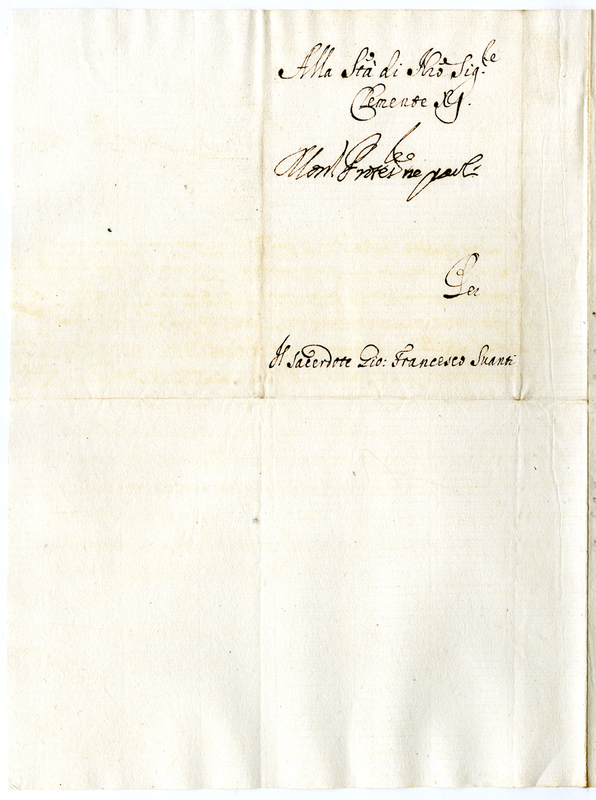 Alla Stà di Nro Sig.re
Clemente XI.
Mons.
Per
Il Sacerdote Gio: Francesco Suanti